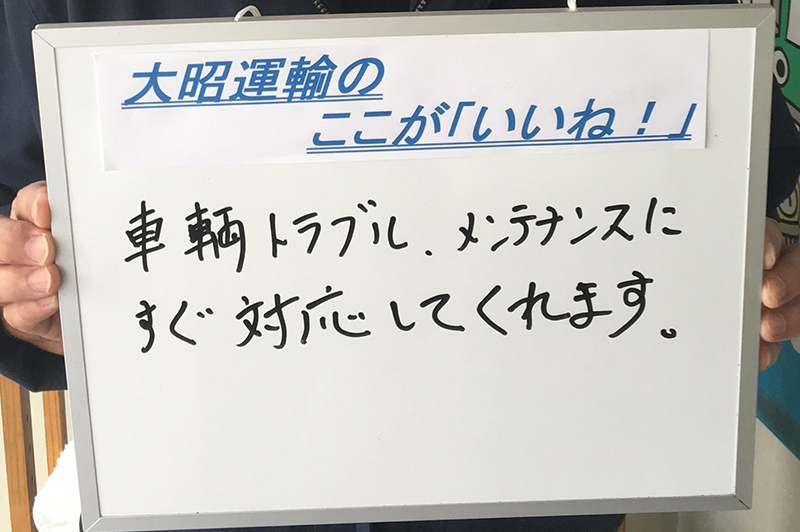 大昭運輸の
ここが「いいね！」
車輌トラブル、メンテナンスに
すぐ対応してくれます。